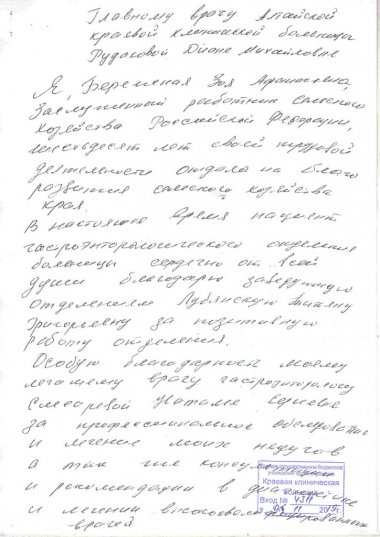 Главному врачу Алтайской
краевой клинической больницы
Рудаковой Диане Михайловне
Я, Беременая Зоя Афанасьевна,
Заслуженный работник сельского
хозяйства Российской Федерации,
шестьдесят лет своей трудовой
деятельности отдала на благо
развития сельского хозяйства
края.
В настоящее время пациент
гастроэнторологического отделение
больницы сердечно от всей
души благодарю заведующую
отделением Лубянскую Татьяну
Григорьевну за позитивную
работу отделения.
Особую благодарность моему
лечащему врачу гастроэнторологу
Наталье
за профессиональное обследование
и лечение моих недугов
а так же
и рекомендации в
и лечении
врачей
Краевая клиническая
больница
Вход №